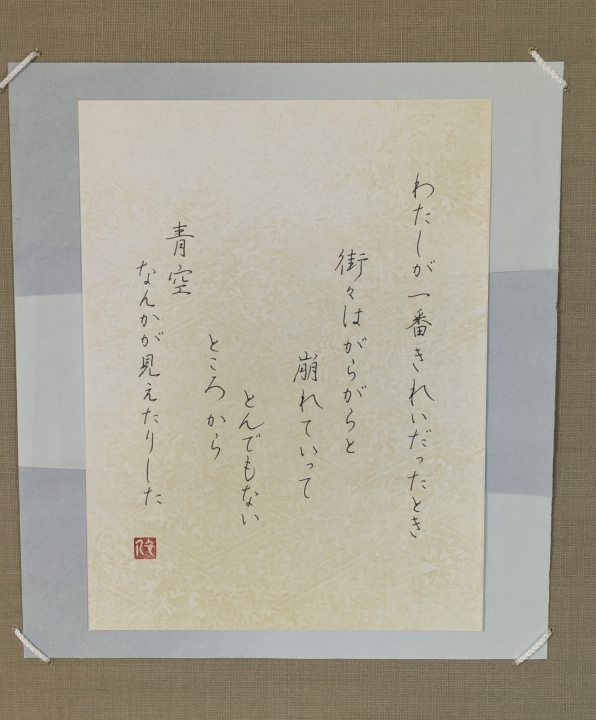 わたしが一番きれいだったとき
街々はがらがらと
崩れていって
とんでもない
ところから
青空
なんかが見えたりした